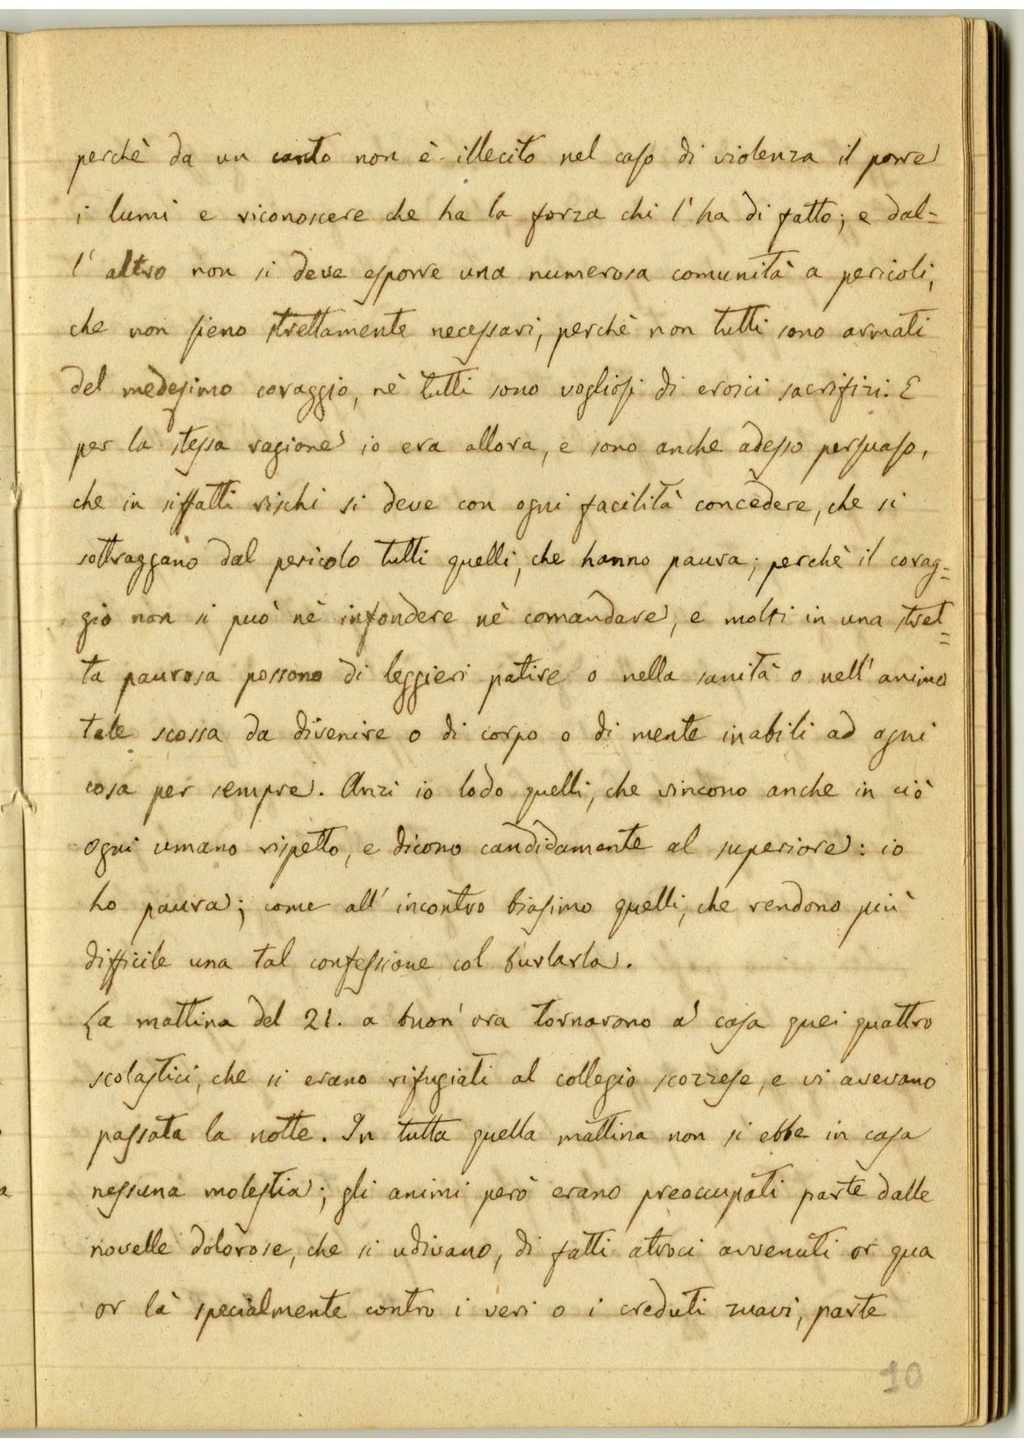 perchè da un canto non è illecito nel caso di violenza il porre
i lumi e riconoscere che ha la forza chi l'ha di fatto; e dal=
l'altro non si deve esporre una numerosa comunità a pericoli,
che non sieno strettamente necessari, perchè non tutti sono armati
del medesimo coraggio, nè tutti sono vogliosi di eroici sacrifizi. E
per la stessa ragione io era allora, e sono anche adesso persuaso,
che in siffatti rischi si deve con ogni facilità concedere, che si
sottraggano dal pericolo tutti quelli, che hanno paura; perchè il corag=
gio non si può nè infondere nè comandare, e molti in una stret=
ta paurosa possono di leggieri patire o nella sanità o nell'animo
tale scossa da divenire o di corpo o di mente inabili ad ogni
cosa per sempre. Anzi io lodo quelli, che vincono anche in ciò
ogni umano rispetto, e dicono candidamente al superiore: io
ho paura; come all'incontro biasimo quelli, che rendono più
difficile una tal confessione col burlarla.
La mattina del 21. a buon'ora tornarono a casa quei quattro
scolastici, che si erano rifugiati al collegio scozzese, e vi avevano
passata la notte. In tutta quella mattina non si ebbe in casa
nessuna molestia; gli animi però erano preoccupati parte dalle
novelle dolorose, che si udivano, di fatti atroci avvenuti or qua
or là specialmente contro i veri o i creduti zuavi, parte
10